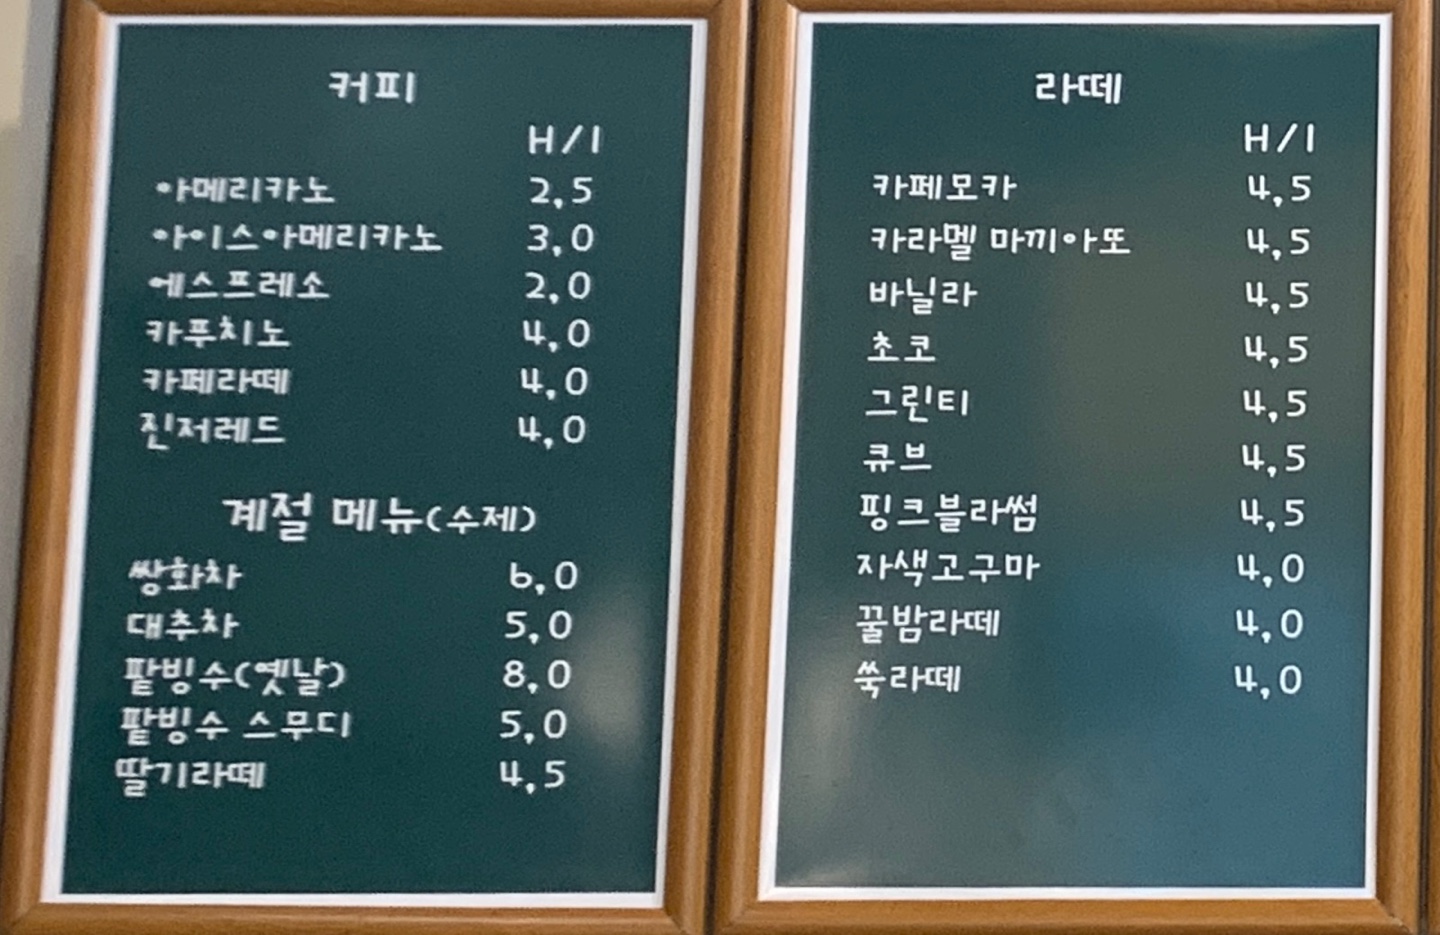 커피
H/I
아메리카노 2,5
아이스아메리카노 3,0
에스프레소 2,0
카푸치노 4,0
카페라떼 4,0
진저레드 4,0
계절 메뉴(수제)
쌍화차 6,0
대추차 5,0
팥빙수(옛날) 8,0
팥빙수 스무디 5,0
딸기라떼 4,5
라떼
H/I
카페모카 4,5
카라멜 마끼아또 4,5
바닐라 4,5
초코 4,5
그린티 4,5
큐브 4,5
핑크블라썸 4,5
자색고구마 4,0
꿀밤라떼 4,0
쑥라떼 4,0